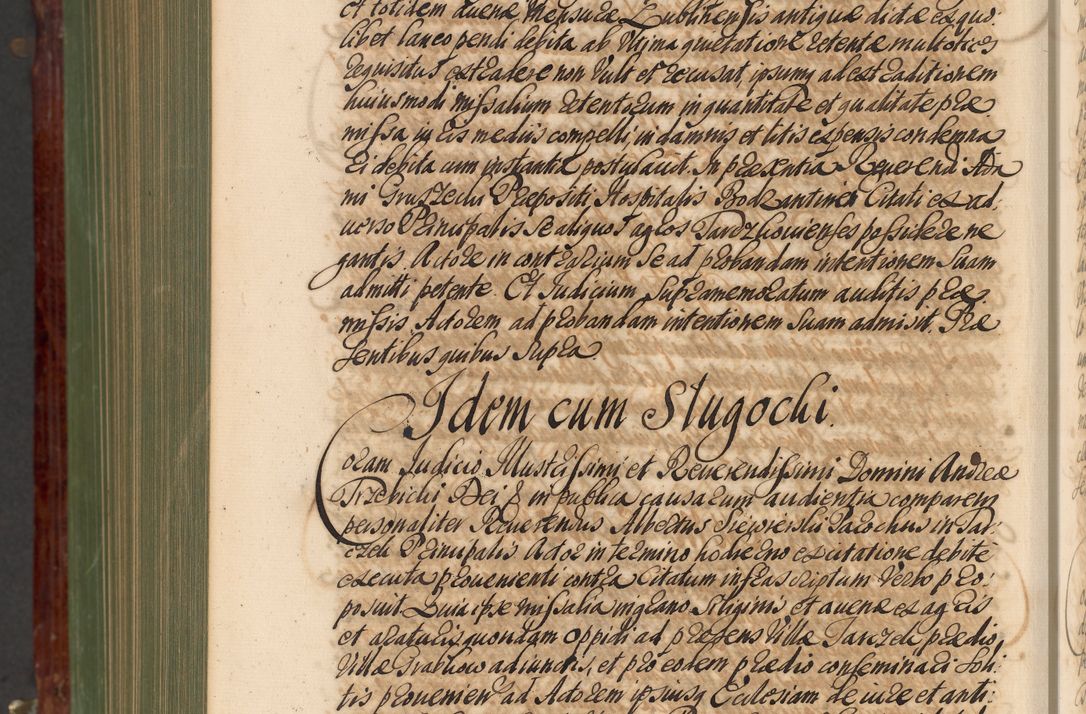 et totidem auenæ mensuræ Lublinensis antiquæ dictæ ex quo
libet laneo pendi debita ab Vltima quietatione retenta multoties
requisitus extradere non Vult et recusat, ipsumq ad extraditionem
huiusmodi missalium retentorum in quantitate et qualitate præ
missa iuris mediis compelli, in damnis et litis expensis condemna
ri debita cum instantia postulauit. In præsentia Reuerendi Ada
mi Gruszecki Præpositi Hospitalis Bodzantinen Citati ex ad
uerso Principalis se aliquot agros Tarczkouienses possidere ne
gantis Actore in contrarium se ad probandam intentionem suam
admitti petente. Et Iudicium supramemoratum auditis præ
missis Actorem ad probandam intentionem suam admisit. Præ
sentibus quibus supra.
Idem cum Slugocki.
Coram Iudicio Illustrissimi et Reuerendissimi Domini Andreæ
Trzebicki Dei & in publica causarum audientia comparens
personaliter Reuerendus Albertus Parochus in Tar
czek Principalis Actor in termino hodierno ex citatione debite
executa proueniente contra Citatum infrascriptum Verbo pro
posuit. Quia ipse missalia in grano siliginis et auenæ ex agris
et araturis quondam oppidi ad præsens Villæ Tarczek prædio
Villæ Grabkow adiunctis, et pro eodem prædio conseminari soli
tis prouenien ad Actorem ipsiusq Ecclesiam de iure et anti